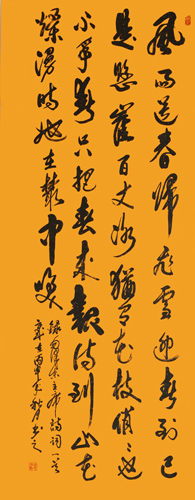 風雨送春歸飛雪迎春到已
是懸崖百丈冰猶有花枝俏〻也
不爭春只把春來報待到山花
爛漫時她在叢中笑
錄毛澤東主席詩詞一首
歲在丙申年秋月書之